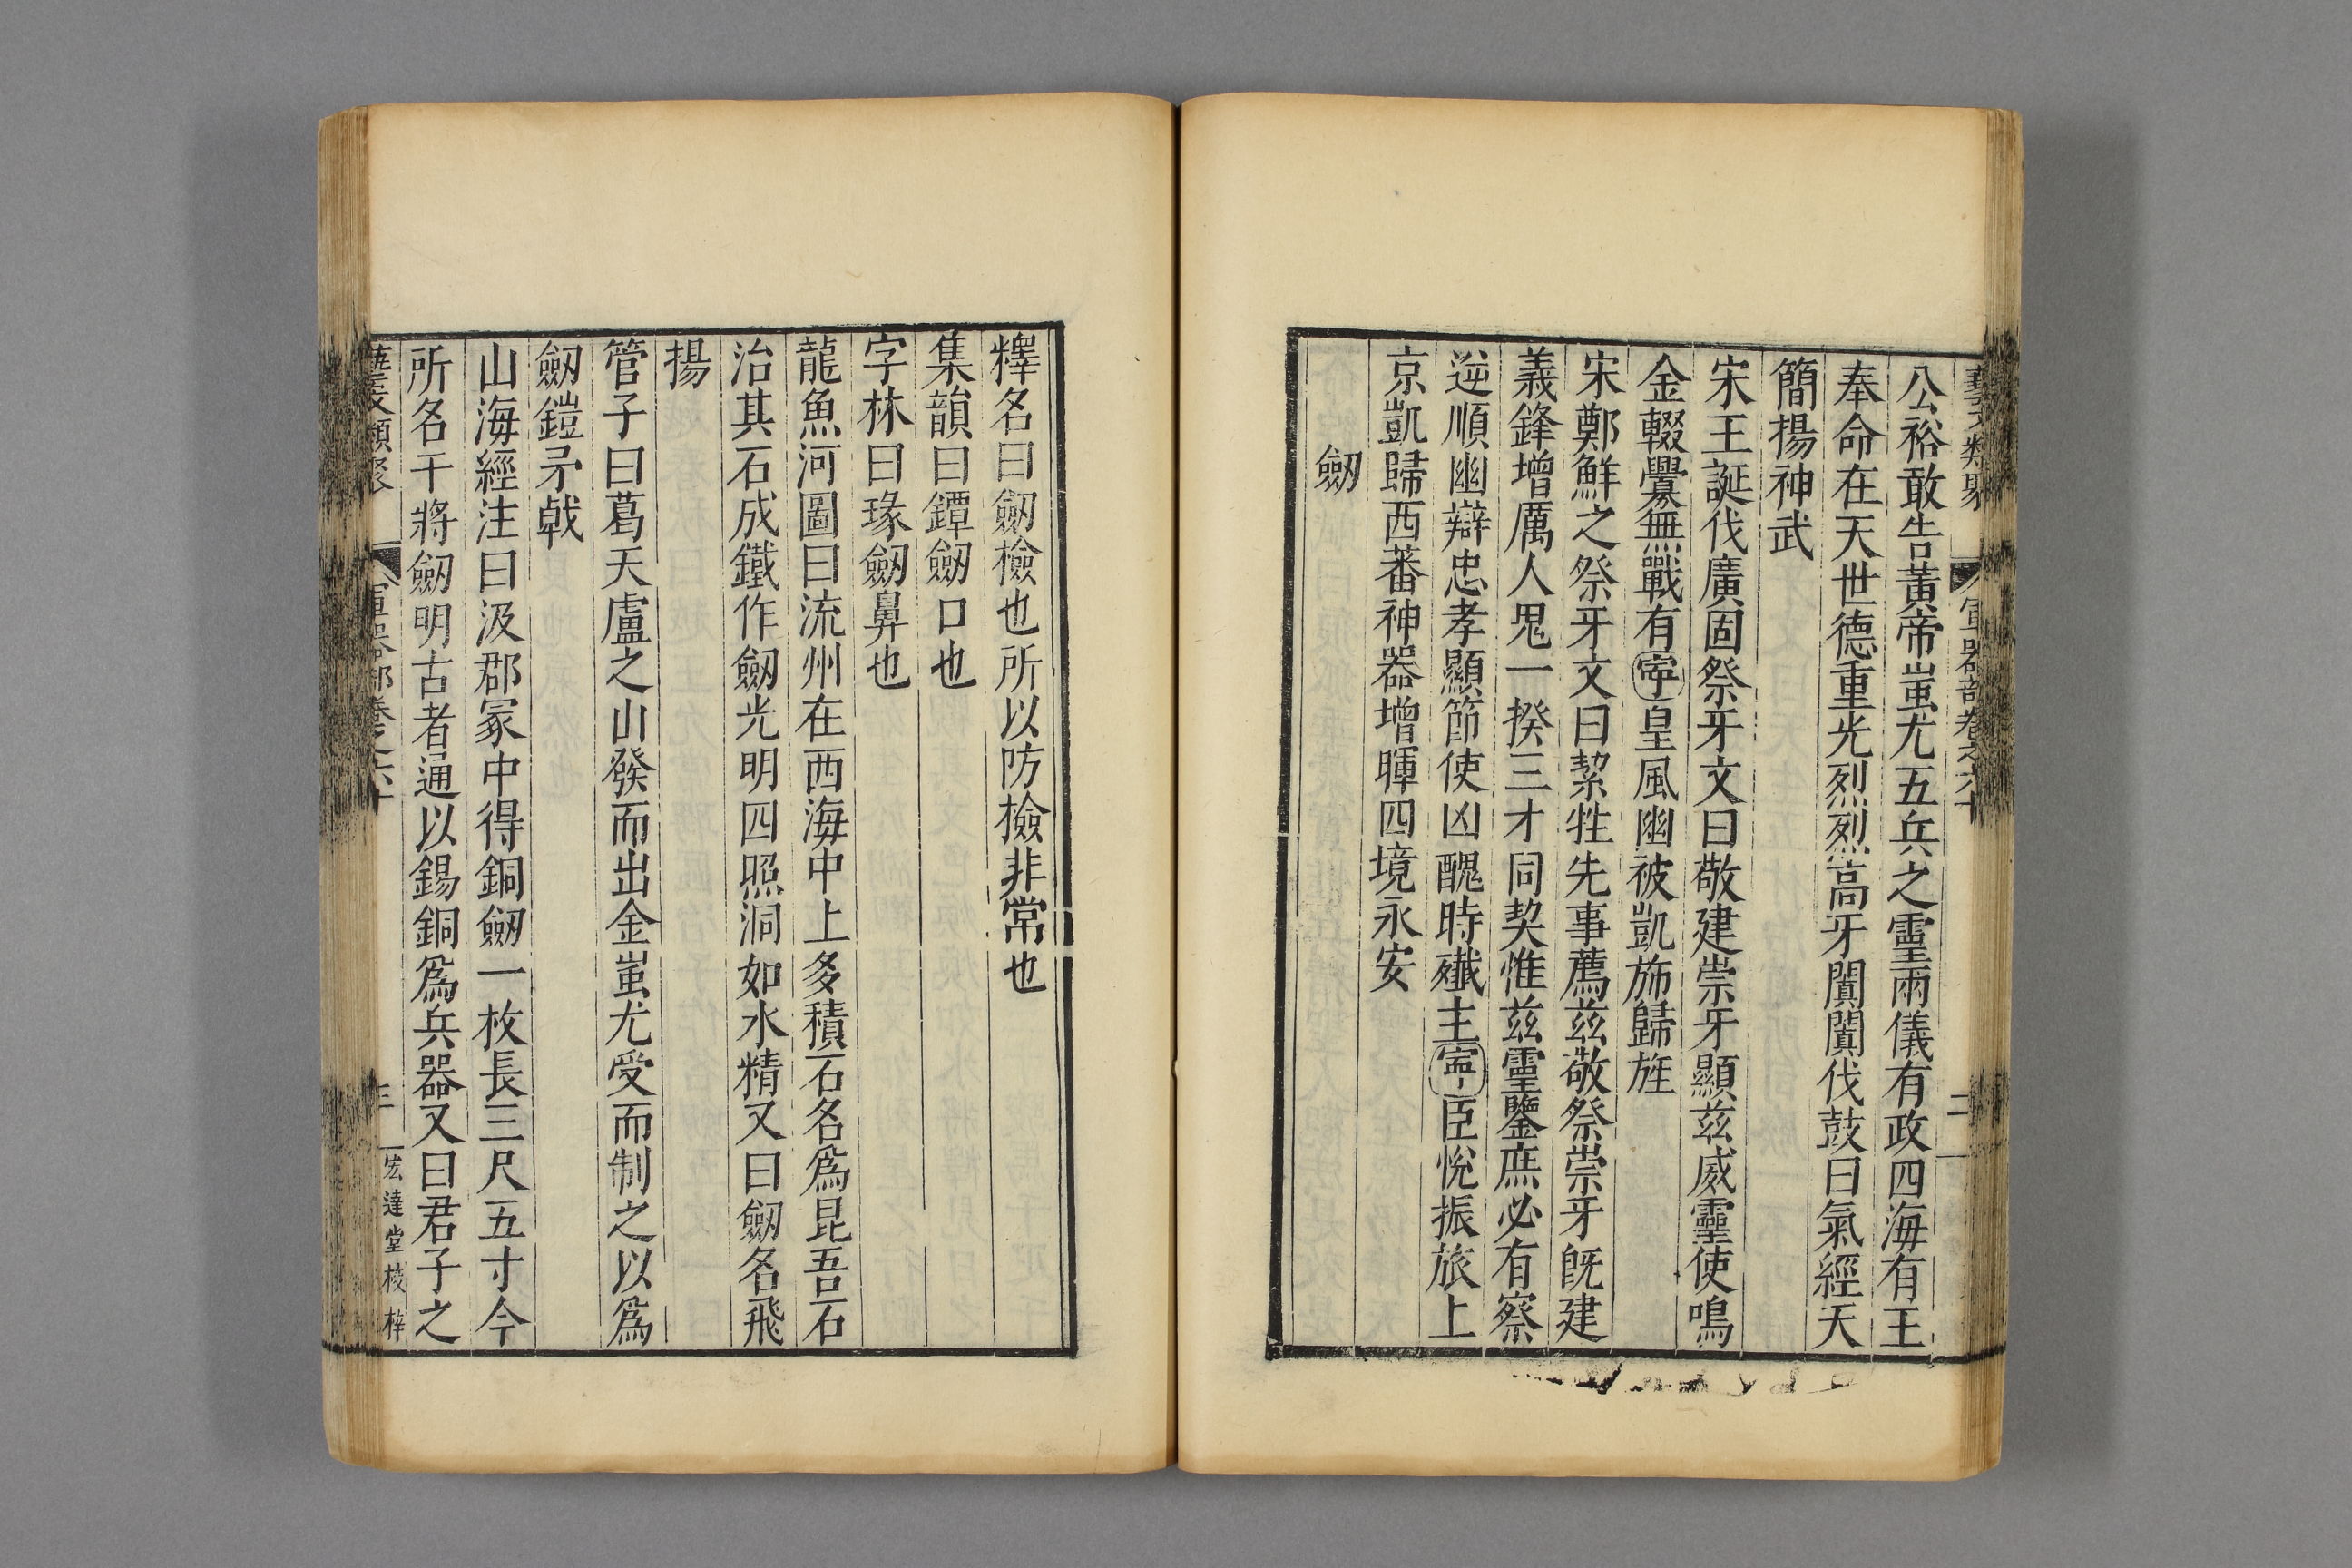 藝文類聚 軍器部卷之六十 二
公裕敢告黃帝蚩尤五兵之靈兩儀有政四海有王
奉命在天世德重光烈烈高牙闐闐伐鼓曰氣經天
簡揚神武
宋王誕伐廣固祭牙文曰敬建崇牙顯茲威靈使鳴
金輟釁無戰有寧皇風幽被凱斾歸旌
宋鄭鮮之祭牙文曰絜牲先事薦茲敬祭崇牙旣建
義鋒增厲人鬼一揆三才同契惟茲靈鑒庶必有察
逆順幽辯忠孝顯節使凶醜時殲主寧臣悅振旅上
京凱歸西蕃神器增暉四境永安
劒
釋名曰劒檢也所以防檢非常也
集韻曰鐔劒口也
字林曰琢劒鼻也
龍魚河圖曰流州在西海中上多積石名爲昆吾石
治其石成鐵作劒光明四照洞如水精又曰劒名飛
揚
管子曰葛天盧之山發而出金蚩尤受而制之以爲
劒鎧矛戟
山海經注曰汲郡冢中得銅劒一枚長三尺五寸今
所名干將劒明古者通以錫銅爲兵器又曰君子之
藝文類聚 軍器部卷之六十 三 宏達堂校梓